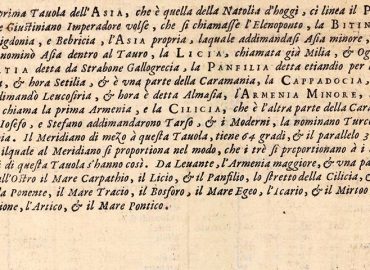 prima Tauola dell'ASIA, che è quella della Natolia d'hoggi, ci linea il P
e Giustiniano Imperadore volse, che si chiamasse l'Elenoponto, la BITIN
igdonia, e Bebricia, l'ASIA propria, laquale addimandasi Asia minore,
nominò Asia dentro al Tauro, la LICIA, chiamata già Milia, & Og
TIA detta da Strabone Gallogrecia, la PANFILIA detta etiandio per
, & hora Setilia, & è vna parte della Caramania, la CAPPADOCIA,
dimandò Leucosiria, & hora è detta Almasia, l'ARMENIA MINORE,
chiama la prima Armenia, e la CILICIA, che è l'altra parte della Cara
Iosefo, e Stefano addimandarono Tarso, & i Moderni, la nominano Turco
ia. Il Meridiano di mezo à questa Tauola, tiene 64 gradi, & il parallelo 3
ilquale al Meridiano si proportiona nel modo, che i tre si proportionano à i
di questa Tauola s'hanno così. Da Leuante, l'Armenia maggiore, & vna pa
ll'Ostro il Mare Carpathio, il Licio, & il Panfilio, lo stretto della Cilicia, &
la Ponente, il Mare Tracio, il Bosforo, il Mare Egeo, l'Icario, & il Mirtoo
ione, l'Artico, & il Mare Pontico.